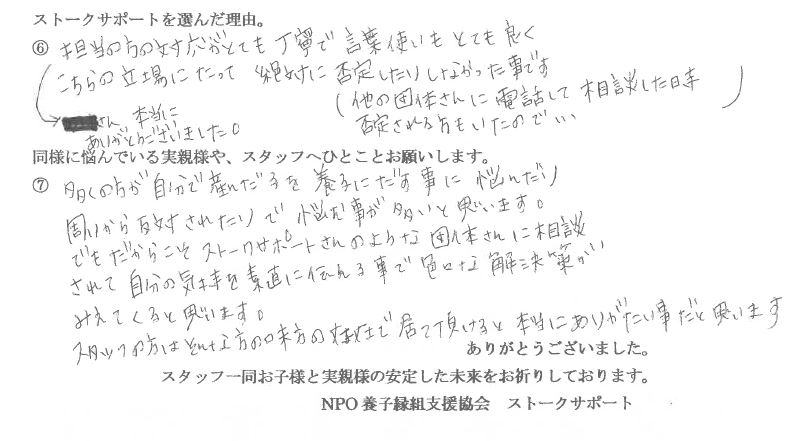 ストークサポートを選んだ理由。
⑥ 担当の方の対応がとても丁寧で言葉使いもとても良く
こちらの立場にたって 絶対に否定したりしなかった事です
(他の団体さんに電話して相談した時
否定される方もいたので…)
さん 本当に
ありがとうございました。
同様に悩んでいる実親様や、スタッフへひとことお願いします。
⑦ 多くの方が自分で産んだ子を養子にだす事に悩んだり
周りから反対されたりで悩む事が多いと思います。
でもだからこそストークサポートさんのような団体さんに相談
されて自分の気持を素直に伝える事で色々な解決策が
みえてくると思います。
スタッフの方はそんな方の味方の存在で居て頂けると本当にありがたい事だと思います
ありがとうございました。
スタッフ一同お子様と実親様の安定した未来をお祈りしております。
NPO養子縁組支援協会 ストークサポート